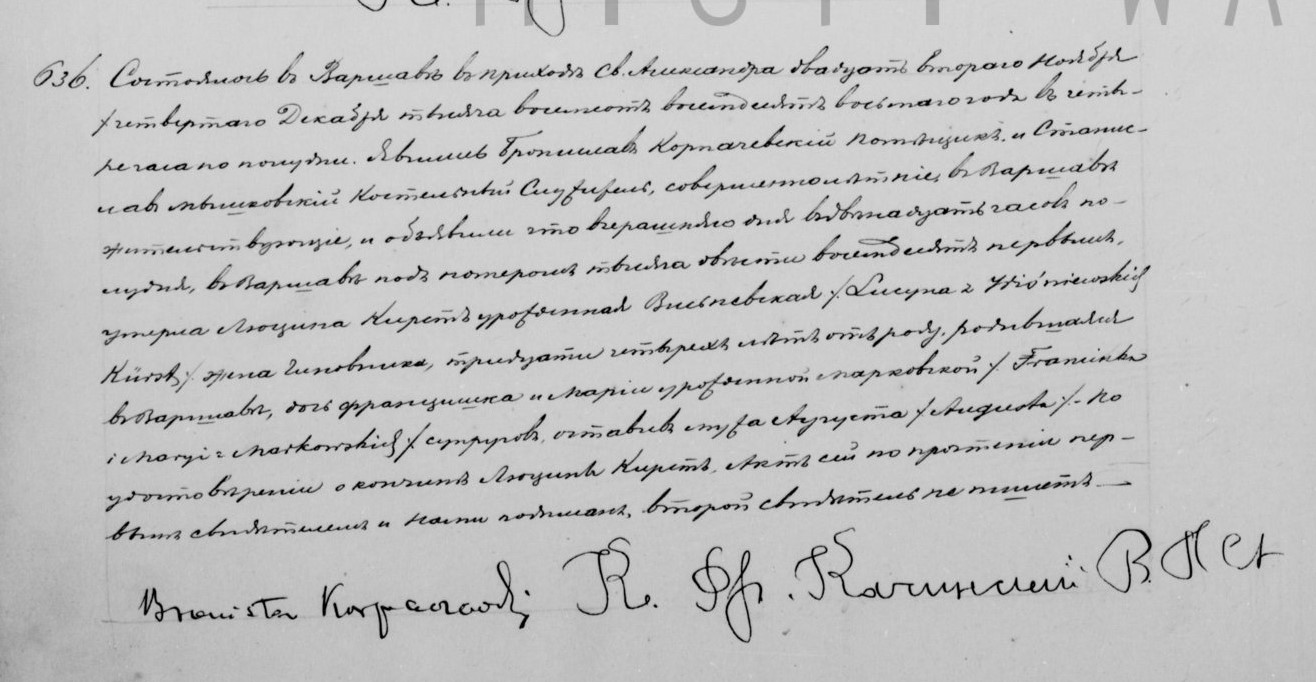 636. Состоялось въ Варшавѣ въ приходѣ Св. Александра двадцать втораго Ноября
/четвертаго Декабря тысяча восемьсотъ восемдесятъ восьмаго года въ четы-
ре часа по полудни. Явились Брониславъ Корпачевскій помѣщикъ, и Станис-
лавъ Мышковскій Костельный Служитель, совершеннолѣтніе, въ Варшавѣ
жительствующіе, и объявили что вчерашняго дня въ двѣнадцать часовъ по-
лудня, въ Варшавѣ подъ номеромъ тысяча двѣсти восемдесятъ первымъ,
умерла Люцина Кирстъ урожденная Висьневская /Lucyna z Wiśniewskich
Kürst/ жена чиновника, тридцати четырехъ лѣтъ отъ роду, родившаяся
въ Варшавѣ, дочь Францишка и Маріи урожденной Марковской / Franciszka
i Maryi z Markowskich / супруговъ, оставивъ мужа Августа / Augusta /.- По
удостовѣреніи о кончинѣ Люцины Кирстъ, Актъ сей по прочтеніи пер-
вымъ свидѣтелемъ и нами подписанъ, второй свидѣтель не пишетъ.—
Bronisław К. Кс. Качинскій В. П С А